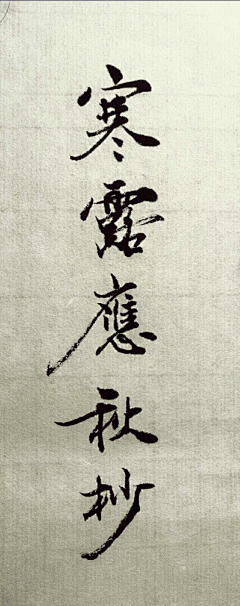 寒露應秋杪